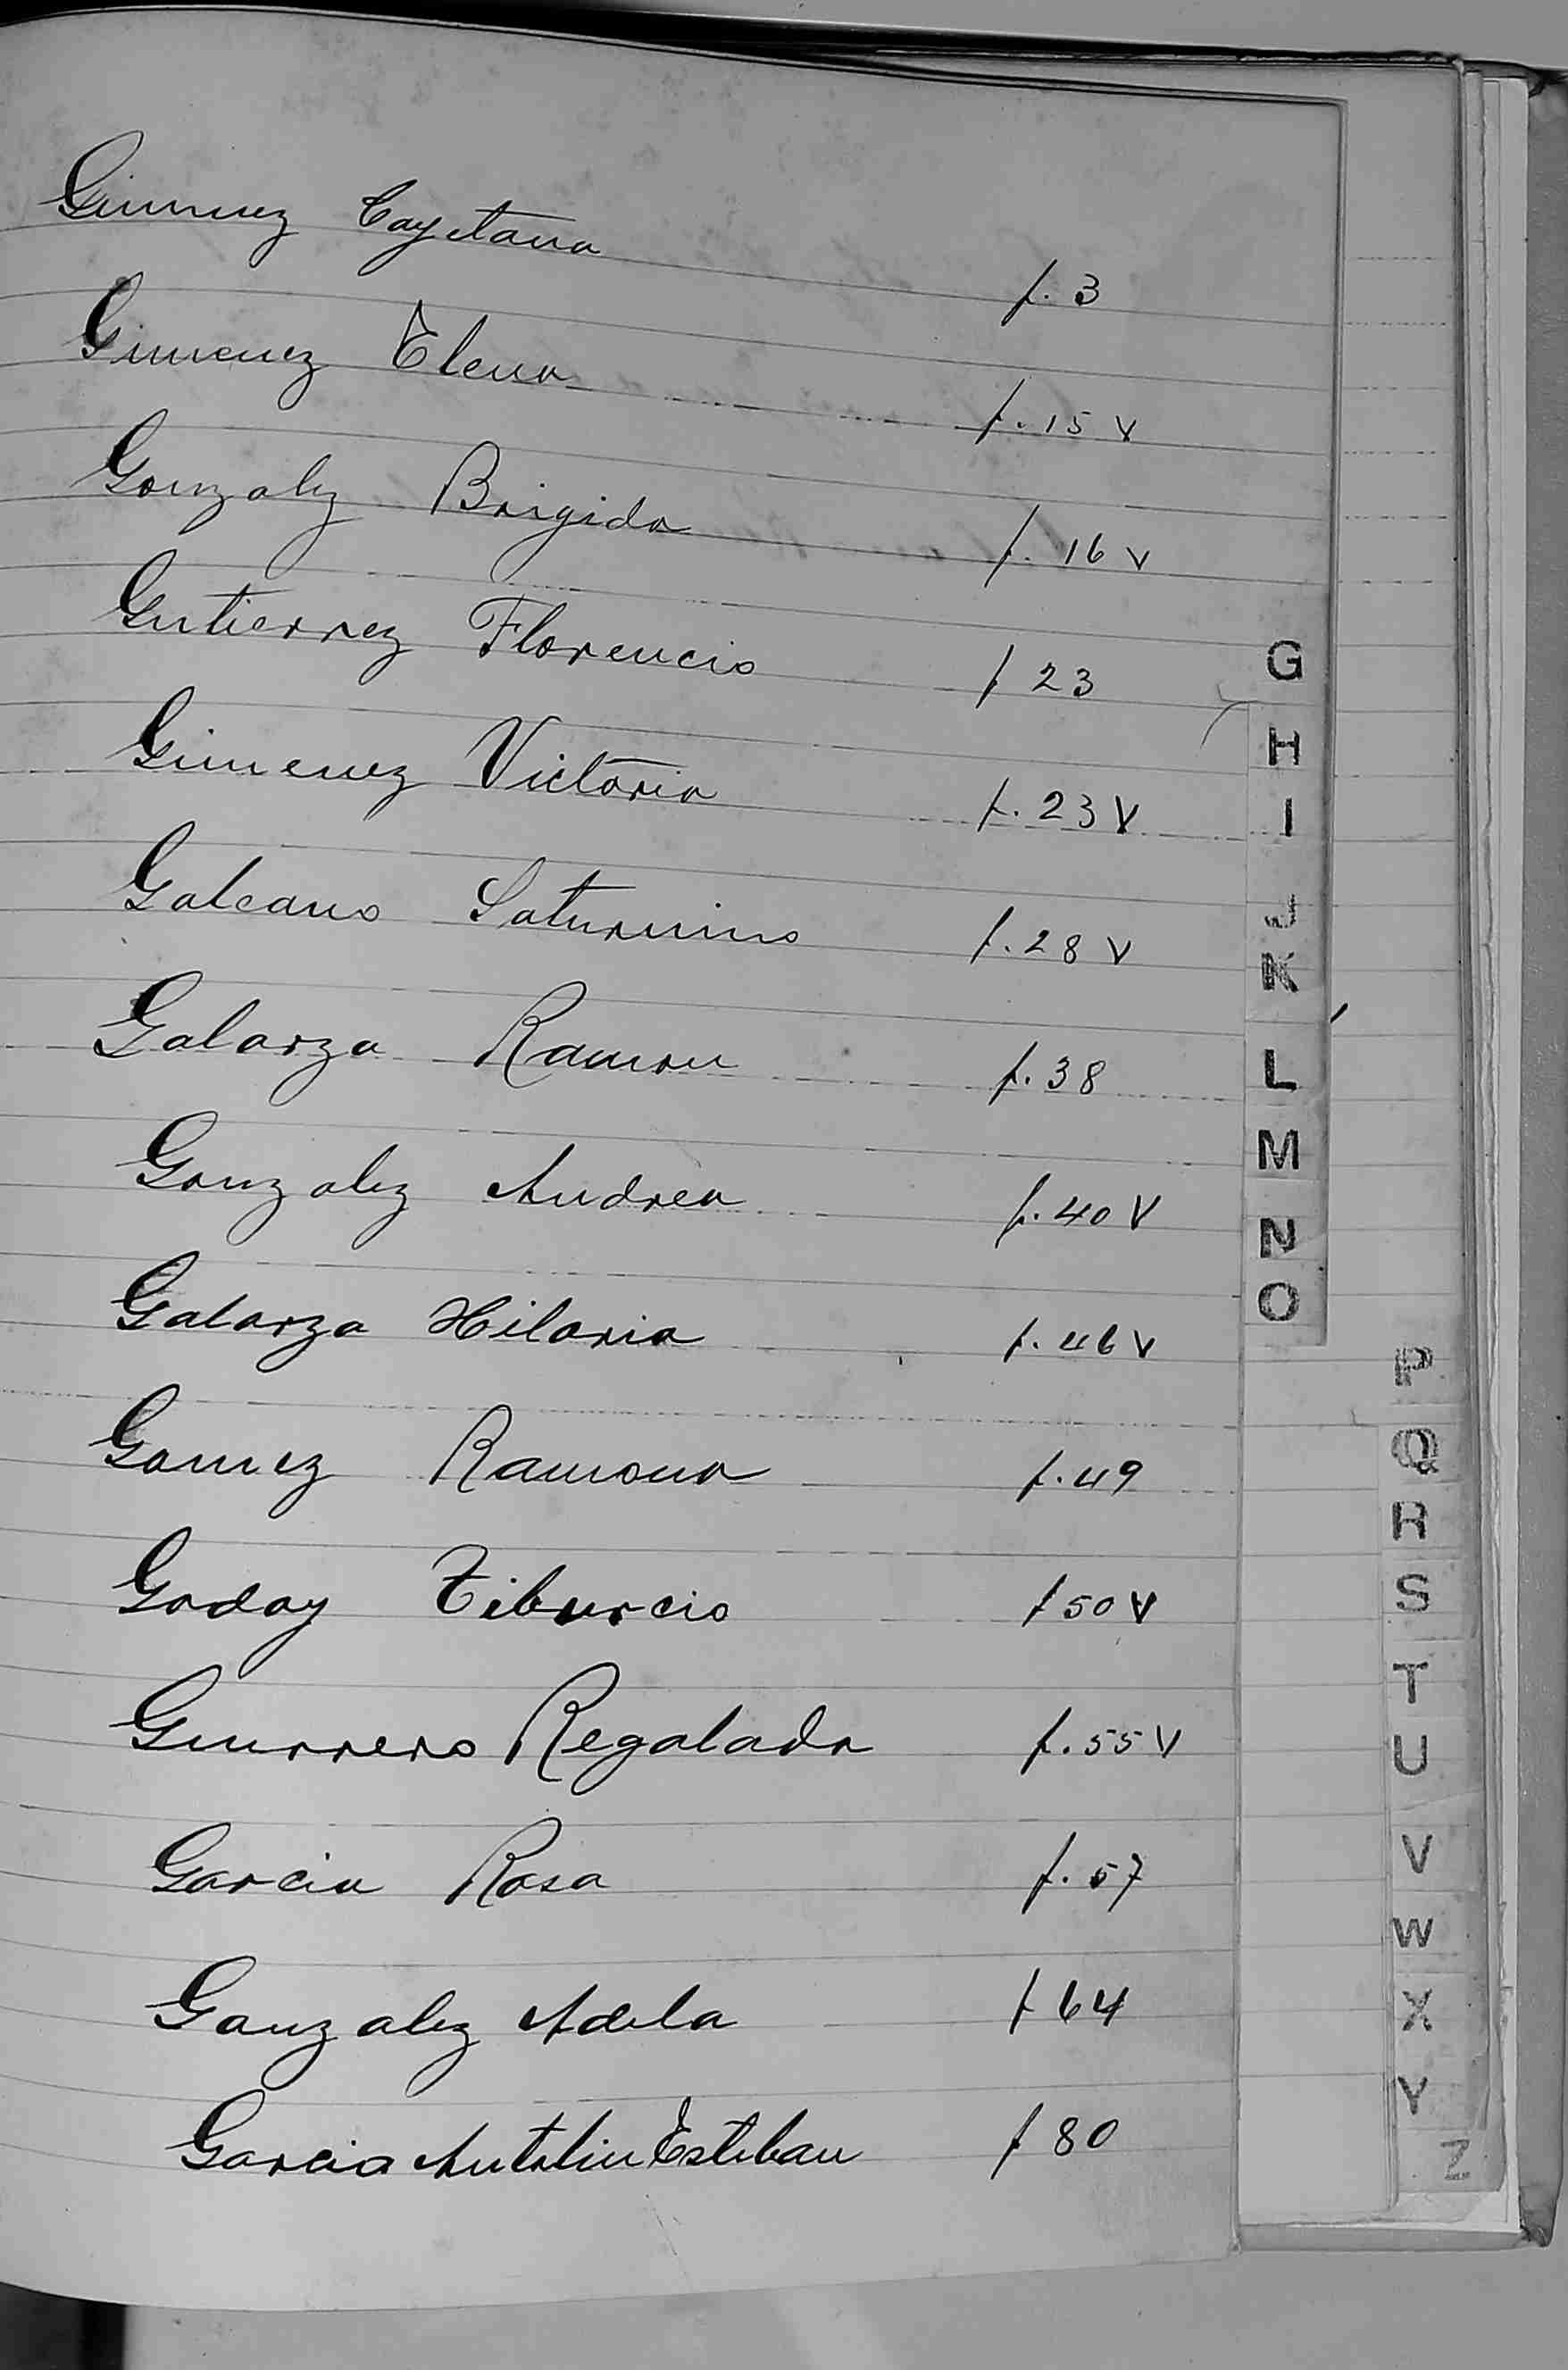 Gimenez Cayetana f. 3
Gimenez Elena f. 15 v
Gonzalez Brigida f. 16 v
Gutierrez Florencio f 23
Gimenez Victoria f. 23 V
Galeano Saturnino f. 28 v
Galarza Ramon f. 38
Gonzalez Andrea f. 40 V
Galarza Hilaria f. 46 v
Gomez Ramona f. 49
Godoy Tiburcio f 50 V
Guerrero Regalada f. 55 V
Garcia Rosa f. 57
Gonzalez Adela f 64
Garcia Antolin Esteban f 80
G
H
I
J
K
L
M
N
O
P
Q
R
S
T
U
V
W
X
Y
Z